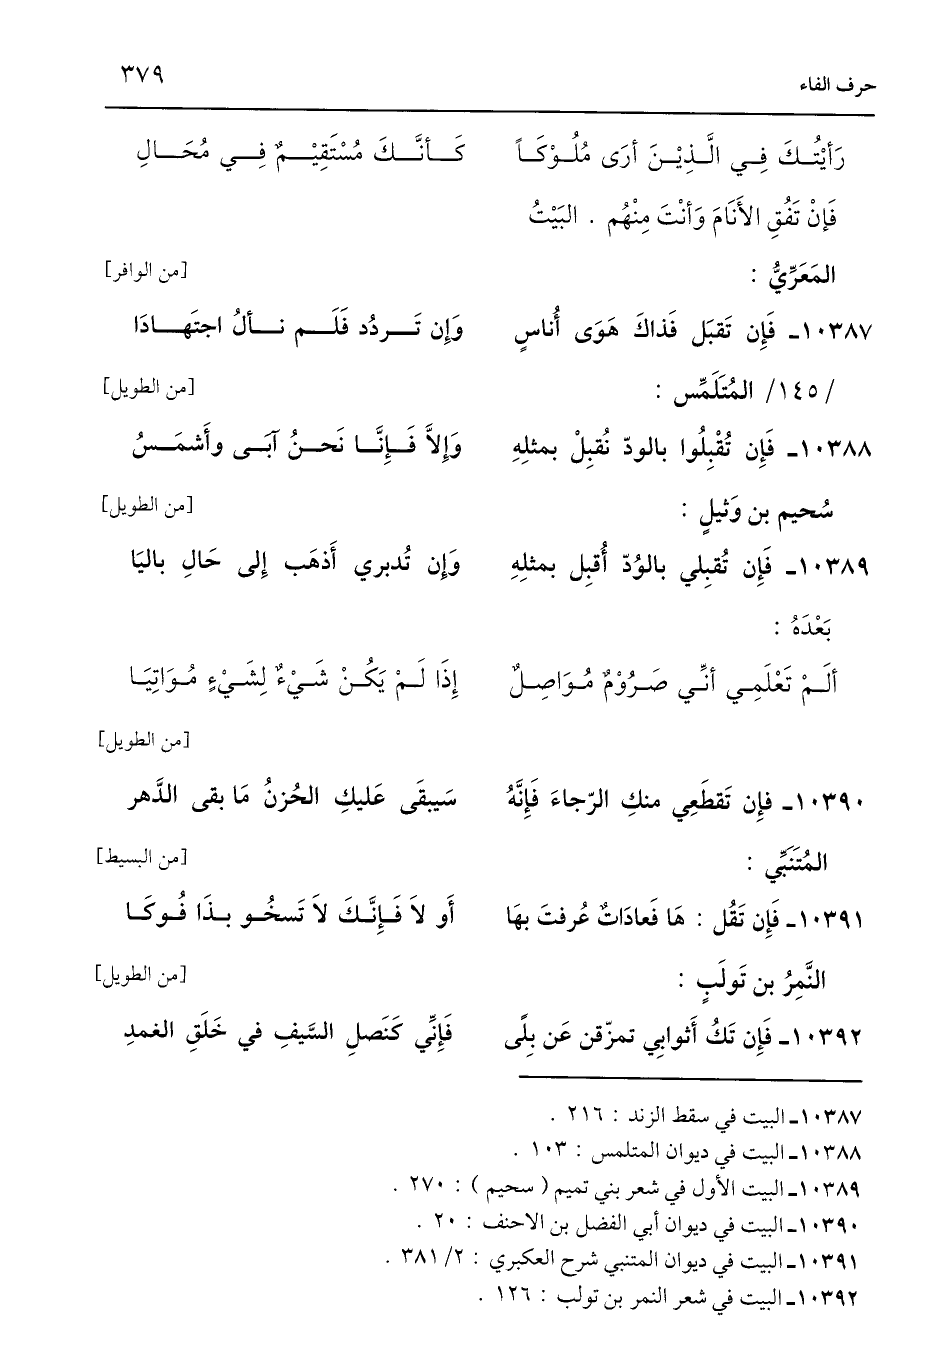 حرف الفاء ٣٧٩
رَأَيْتُـكَ فِـي الَّـذِيْـنَ أرَى مُلُـوْكَـاً كَـأنَّـكَ مُسْتَقِيْـمٌ فِـي مُحَـالِ
فَإنْ تَفُقِ الأَنَامَ وَأنْتَ مِنْهُم . البَيْتُ
المَعَرِّيُّ : [من الوافر]
١٠٣٨٧ـ فَإِن تَقبَل فَذاكَ هَوَى أُناسٍ وَإِن تَـردُد فَلَـم نـألُ اجتَهـادَا
/١٤٥/ المُتَلَمِّس : [من الطويل]
١٠٣٨٨ـ فَإِن تُقْبِلُوا بالودّ نُقبِلْ بمثلِهِ وَإلاَّ فَـإنَّـا نَحـنُ آبَـى وأَشمَـسُ
سُحيم بن وَثيلٍ : [من الطويل]
١٠٣٨٩ـ فَإِن تُقبِلي بالوُدّ أُقبِل بمثلِهِ وَإن تُدبري أَذهَب إلى حَالِ باليَا
بَعْدَهُ :
ألَـمْ تَعْلَمِـي أنّـي صَـرُوْمٌ مُـوَاصِـلٌ إذَا لَـمْ يَكُـنْ شَـيْءٌ لِشَـيْءٍ مُـوَاتِيَـا
[من الطويل]
١٠٣٩٠ـ فإن تَقطَعِي منكِ الرّجاءَ فَإنَّهُ سَيبقَى عَليكِ الحُزنُ مَا بقى الدَّهر
المُتَنَبِّي : [من البسيط]
١٠٣٩١ـ فَإِن تَقُل : هَا فَعادَاتٌ عُرفتَ بهَا أَو لاَ فَـإنَّـكَ لاَ تَسخُـو بـذَا فُـوكَـا
النَّمِرُ بن تَولَبٍ : [من الطويل]
١٠٣٩٢ـ فَإِن تَكُ أَثوابِي تمزّقن عَن بِلًى فَإنِّي كَنَصلِ السَّيفِ في خَلَقِ الغمدِ
١٠٣٨٧ـ البيت في سقط الزند : ٢١٦ .
١٠٣٨٨ـ البيت في ديوان المتلمس : ١٠٣ .
١٠٣٨٩ـ البيت الأول في شعر بني تميم ( سحيم ) : ٢٧٠ .
١٠٣٩٠ـ البيت في ديوان أبي الفضل بن الاحنف : ٢٠ .
١٠٣٩١ـ البيت في ديوان المتنبي شرح العكبري : ٢/ ٣٨١ .
١٠٣٩٢ـ البيت في شعر النمر بن تولب : ١٢٦ .